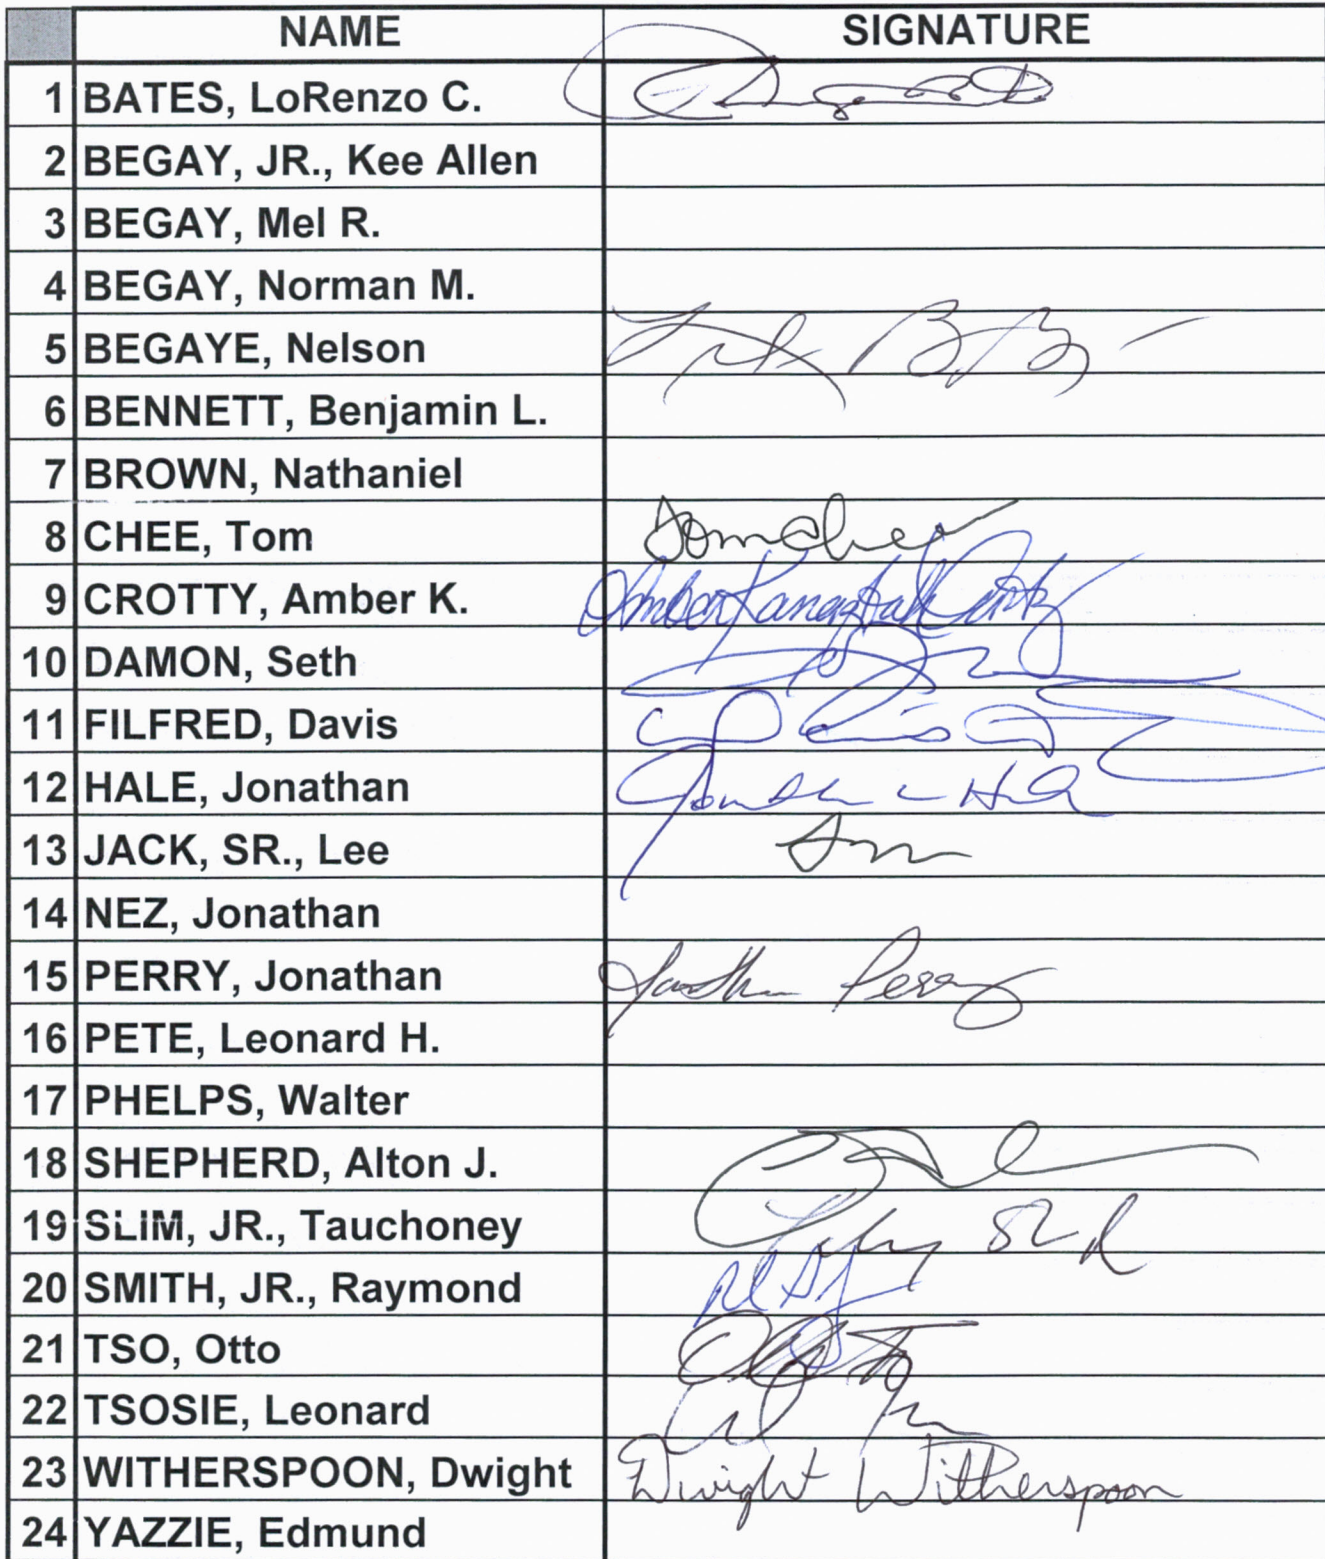 NAME SIGNATURE
1 BATES, LoRenzo C.
2 BEGAY, JR., Kee Allen
3 BEGAY, Mel R.
4 BEGAY, Norman M.
5 BEGAYE, Nelson
6 BENNETT, Benjamin L.
7 BROWN, Nathaniel
8 CHEE, Tom Tom Chee
9 CROTTY, Amber K. Amber Kanazbah Crotty
10 DAMON, Seth
11 FILFRED, Davis
12 HALE, Jonathan
13 JACK, SR., Lee
14 NEZ, Jonathan
15 PERRY, Jonathan Jonathan Perry
16 PETE, Leonard H.
17 PHELPS, Walter
18 SHEPHERD, Alton J.
19 SLIM, JR., Tauchoney
20 SMITH, JR., Raymond
21 TSO, Otto
22 TSOSIE, Leonard
23 WITHERSPOON, Dwight Dwight Witherspoon
24 YAZZIE, Edmund